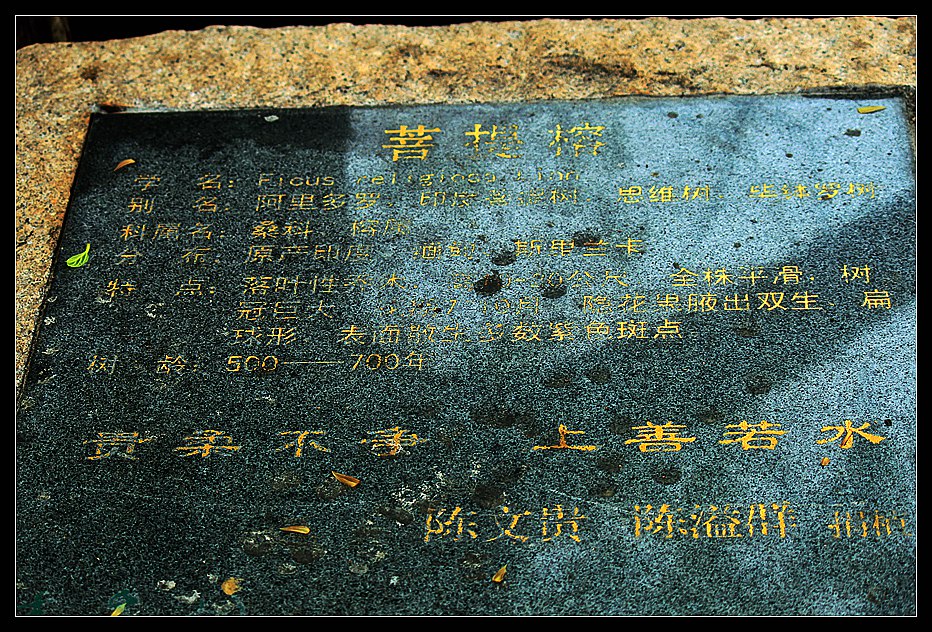 菩提榕
学 名：Ficus religiosa Linn
别 名：阿里多罗，印度菩提树，思维树，毕钵罗树
科属名：桑科 榕属
分 布：原产印度、缅甸、斯里兰卡
特 点：落叶性乔木，公尺，全株平滑；树
冠巨大，隐花果腋出双生，扁
球形，表面散生多数紫色斑点
树 龄：500——700年
贵柔不争 上善若水
陈文贵 陈溢群 捐植